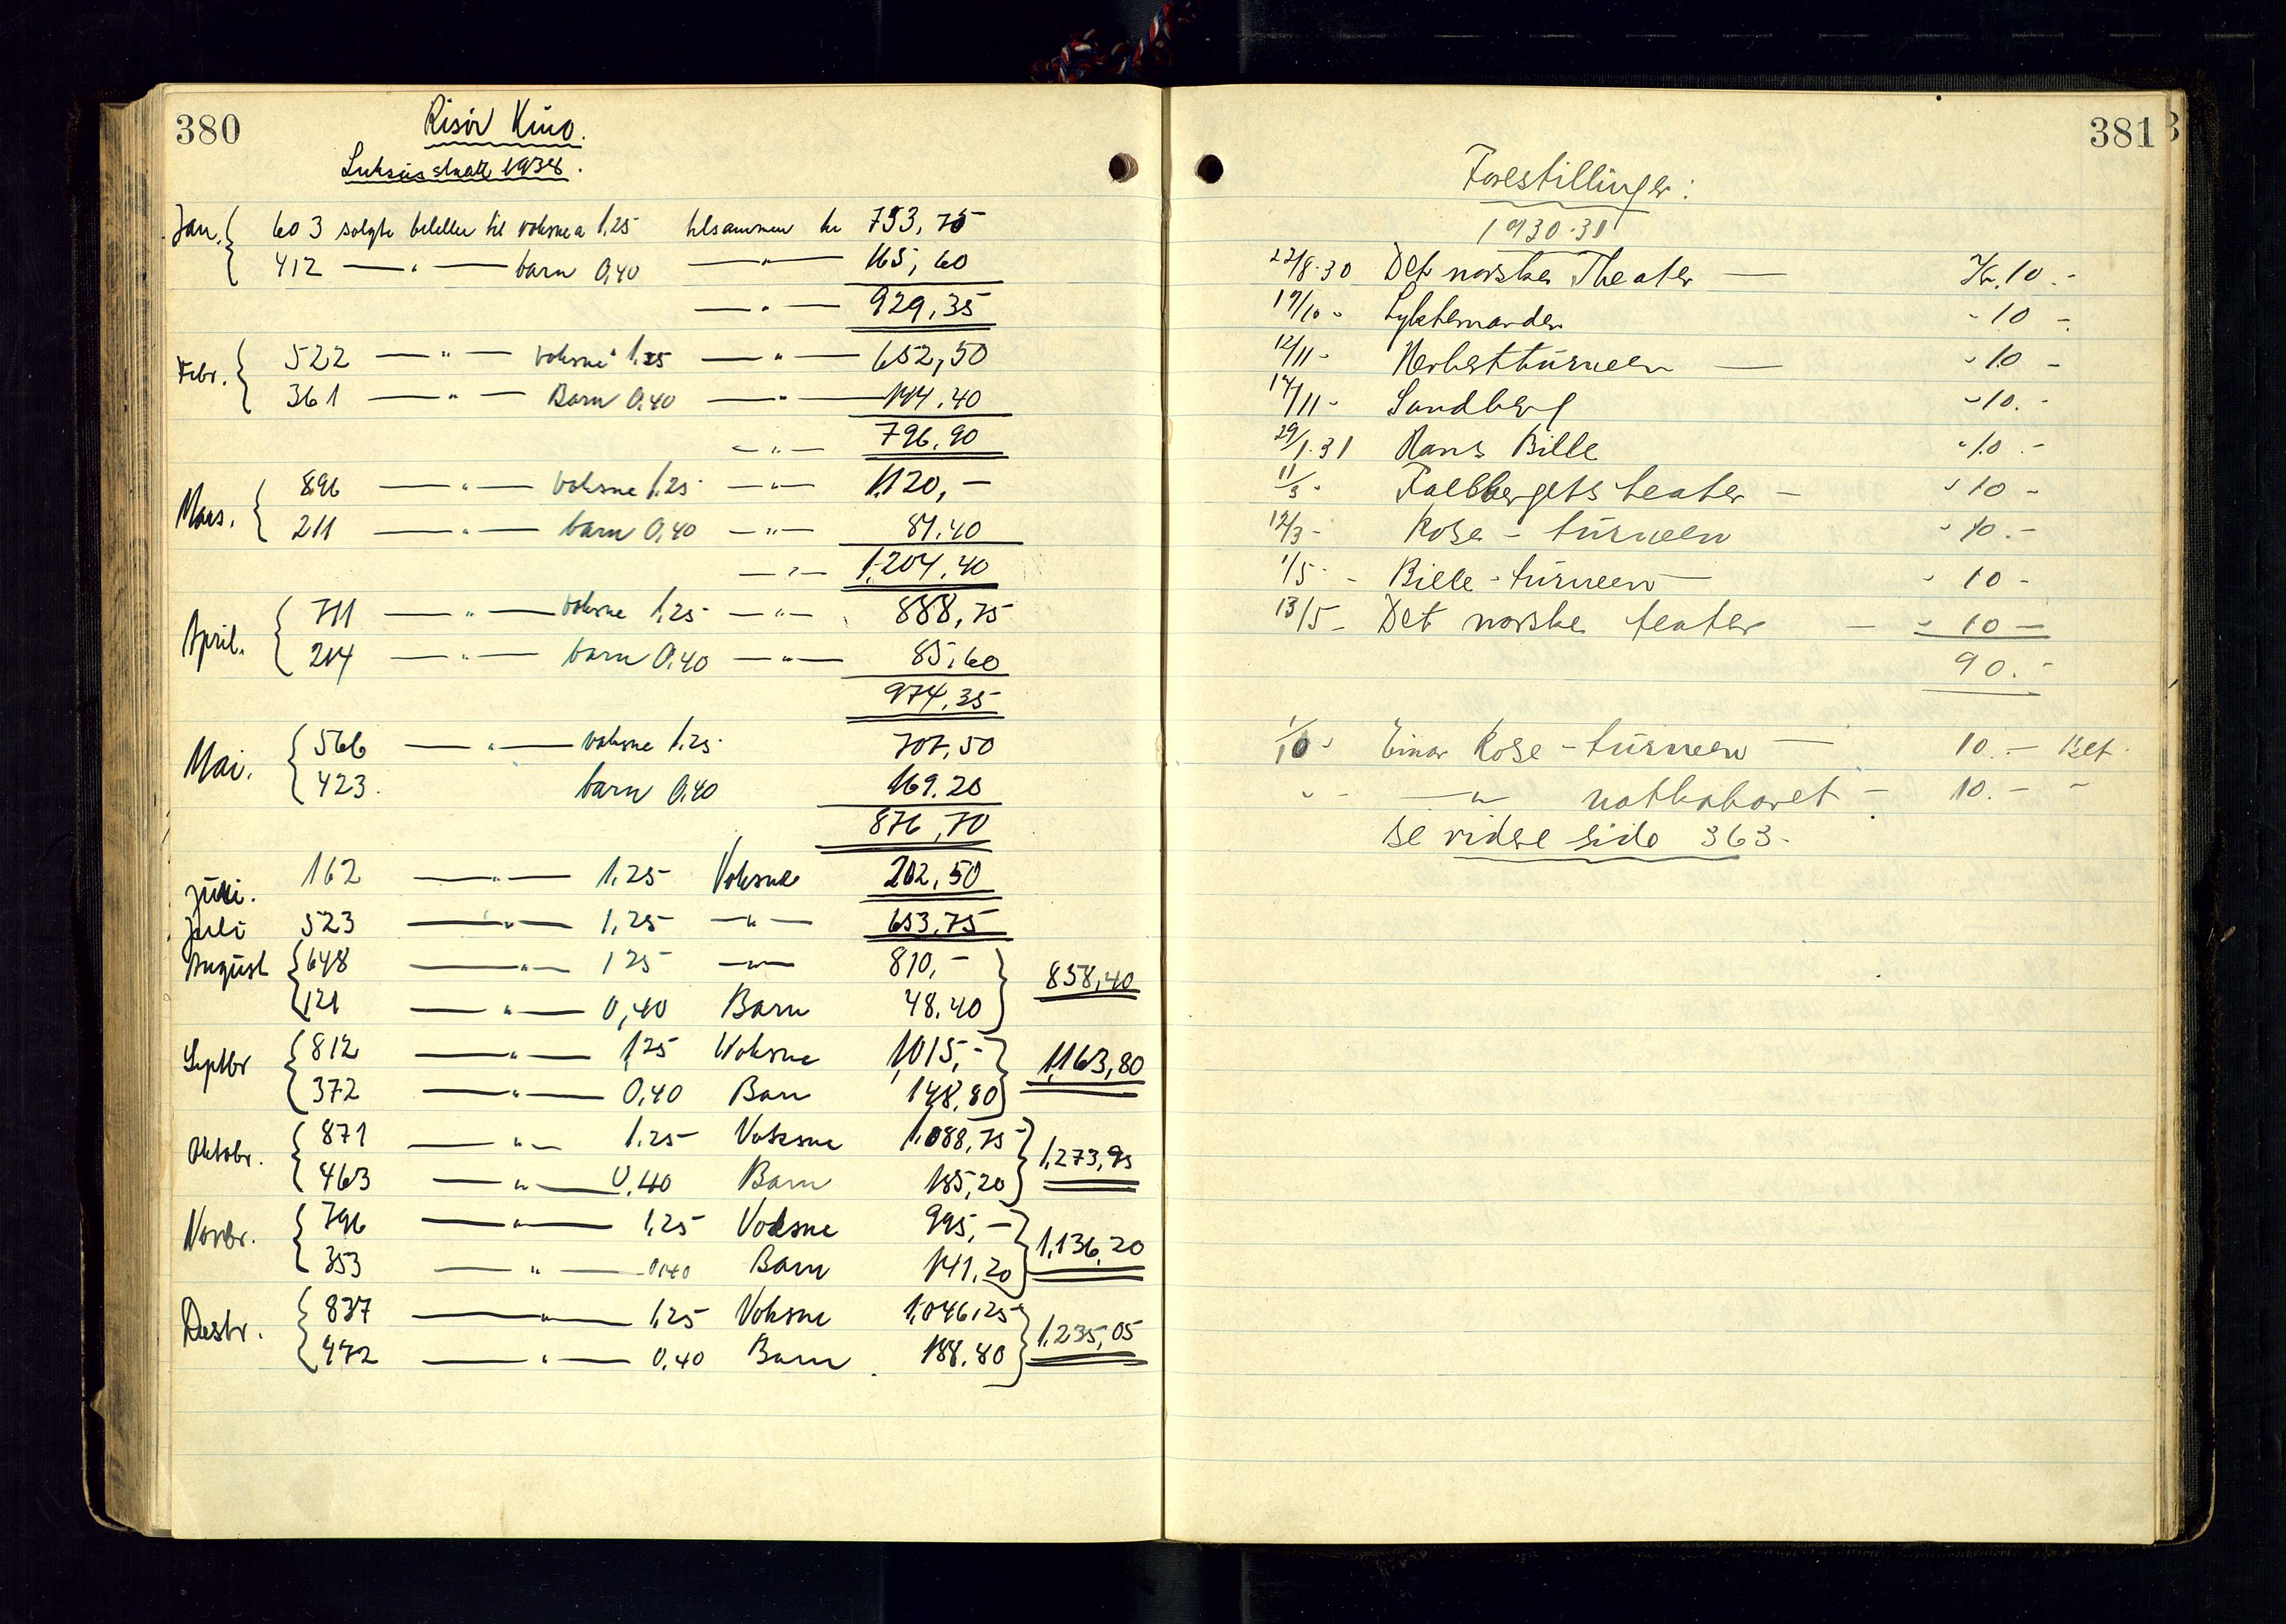 380
Risör Kino.
Luksusskatt 1934.
Jan. 603 solgte billetter til voksne a 1,25 tilsammen kr 753,75
412 — " — barn 0,40 — " — 165,60
— " — 929,35
Febr. 522 — " — voksne 1,25 — " — 652,50
361 — " — Barn 0,40 — " — 144.40
— " — 796,90
Mars. 896 — " — voksne 1.25 — " — 1120,—
211 — " — barn 0,40 — " — 84.40
— " — 1.204.40
April. 711 — " — voksne 1,25 — " — 888,75
214 — " — barn 0,40 — " — 85,60
974,35
Mai. 566 — " — voksne 1,25 707,50
423. barn 0,40 169.20
876,70
Juni. 162 — " — 1,25 Voksne 202,50
Juli 523 — " — 1,25 — " — 653,75
August 648 — " — 1 25 — " — 810,—
858,40
121 — " — 0,40 Barn 48.40
Septbr 812 — " — 1,25 Voksne 1,015,-
1,163,80
372 — " — 0,40 Barn 148,80
Oktobr. 871 — " — 1.25 Voksne 1,088,75
1,273,95
463 — " — 0,40 Barn 185,20
Novbr. 796 — " — 1,25 Voksne 995,—
1,136,20
353 — " — 0,40 Barn 141,20
Desbr. 837 — " — 1,25 Voksne 1,046,25
1,235,05
472 — " — 0,40 Barn 188,80
381
Forestillinger:
1930-31
22/8.30 Det norske Theater — Kr. 10.-
17/10 - Lyktemanden " 10 -
12/11 - Herbstturneen — " 10 -
14/11 - Sandberg " 10.-
29/1.31 Hans Bille " 10.-
11/3 - Falkbergets teater — " 10 -
12/3 - Rose - turneen " 10.-
1/5 - Bille - turneen — " 10 -
13/5 - Det norske teater — " 10 —
90.-
1/10 - Einar Rose - turneen — 10.— Bet.
" - — " — natkabaret — 10.— "
Se vidre side 363.